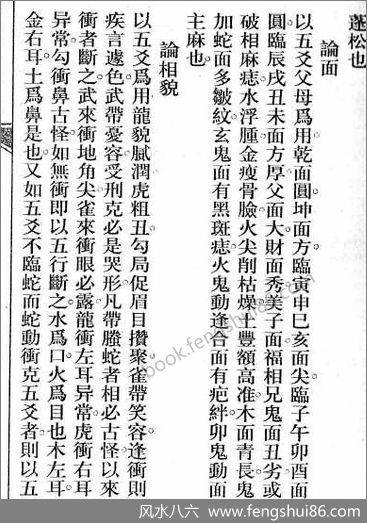 蓬松也
論面
以五爻父母爲用乾面圓坤面方臨寅申巳亥面尖臨子午卯酉面
圓臨辰戌丑未面方厚父面大財面秀美子面福相兄鬼面丑劣或
破相麻痣水浮腫金瘦骨臉火尖削枯燥土豐額高准木面青長鬼
加蛇面多皺紋玄鬼面有黑斑痣火鬼動逢合面有疤絆卯鬼動面
主麻也
論相貌
以五爻爲用龍貌膩潤虎粗丑勾局促眉目攢聚雀帶笑容逢衝則
疾言遽色武帶憂容受刑克必是哭形凡帶螣蛇者相必古怪以來
衝者斷之武來衝地角尖雀來衝眼必露龍衝左耳异常虎衝右耳
异常勾衝鼻古怪如無衝即以五行斷之水爲口火爲目也木左耳
金右耳土爲鼻是也又如五爻不臨蛇而蛇動衝克五爻者則以五
book.fengshui86.com
风水八六 www.fengshui86.com